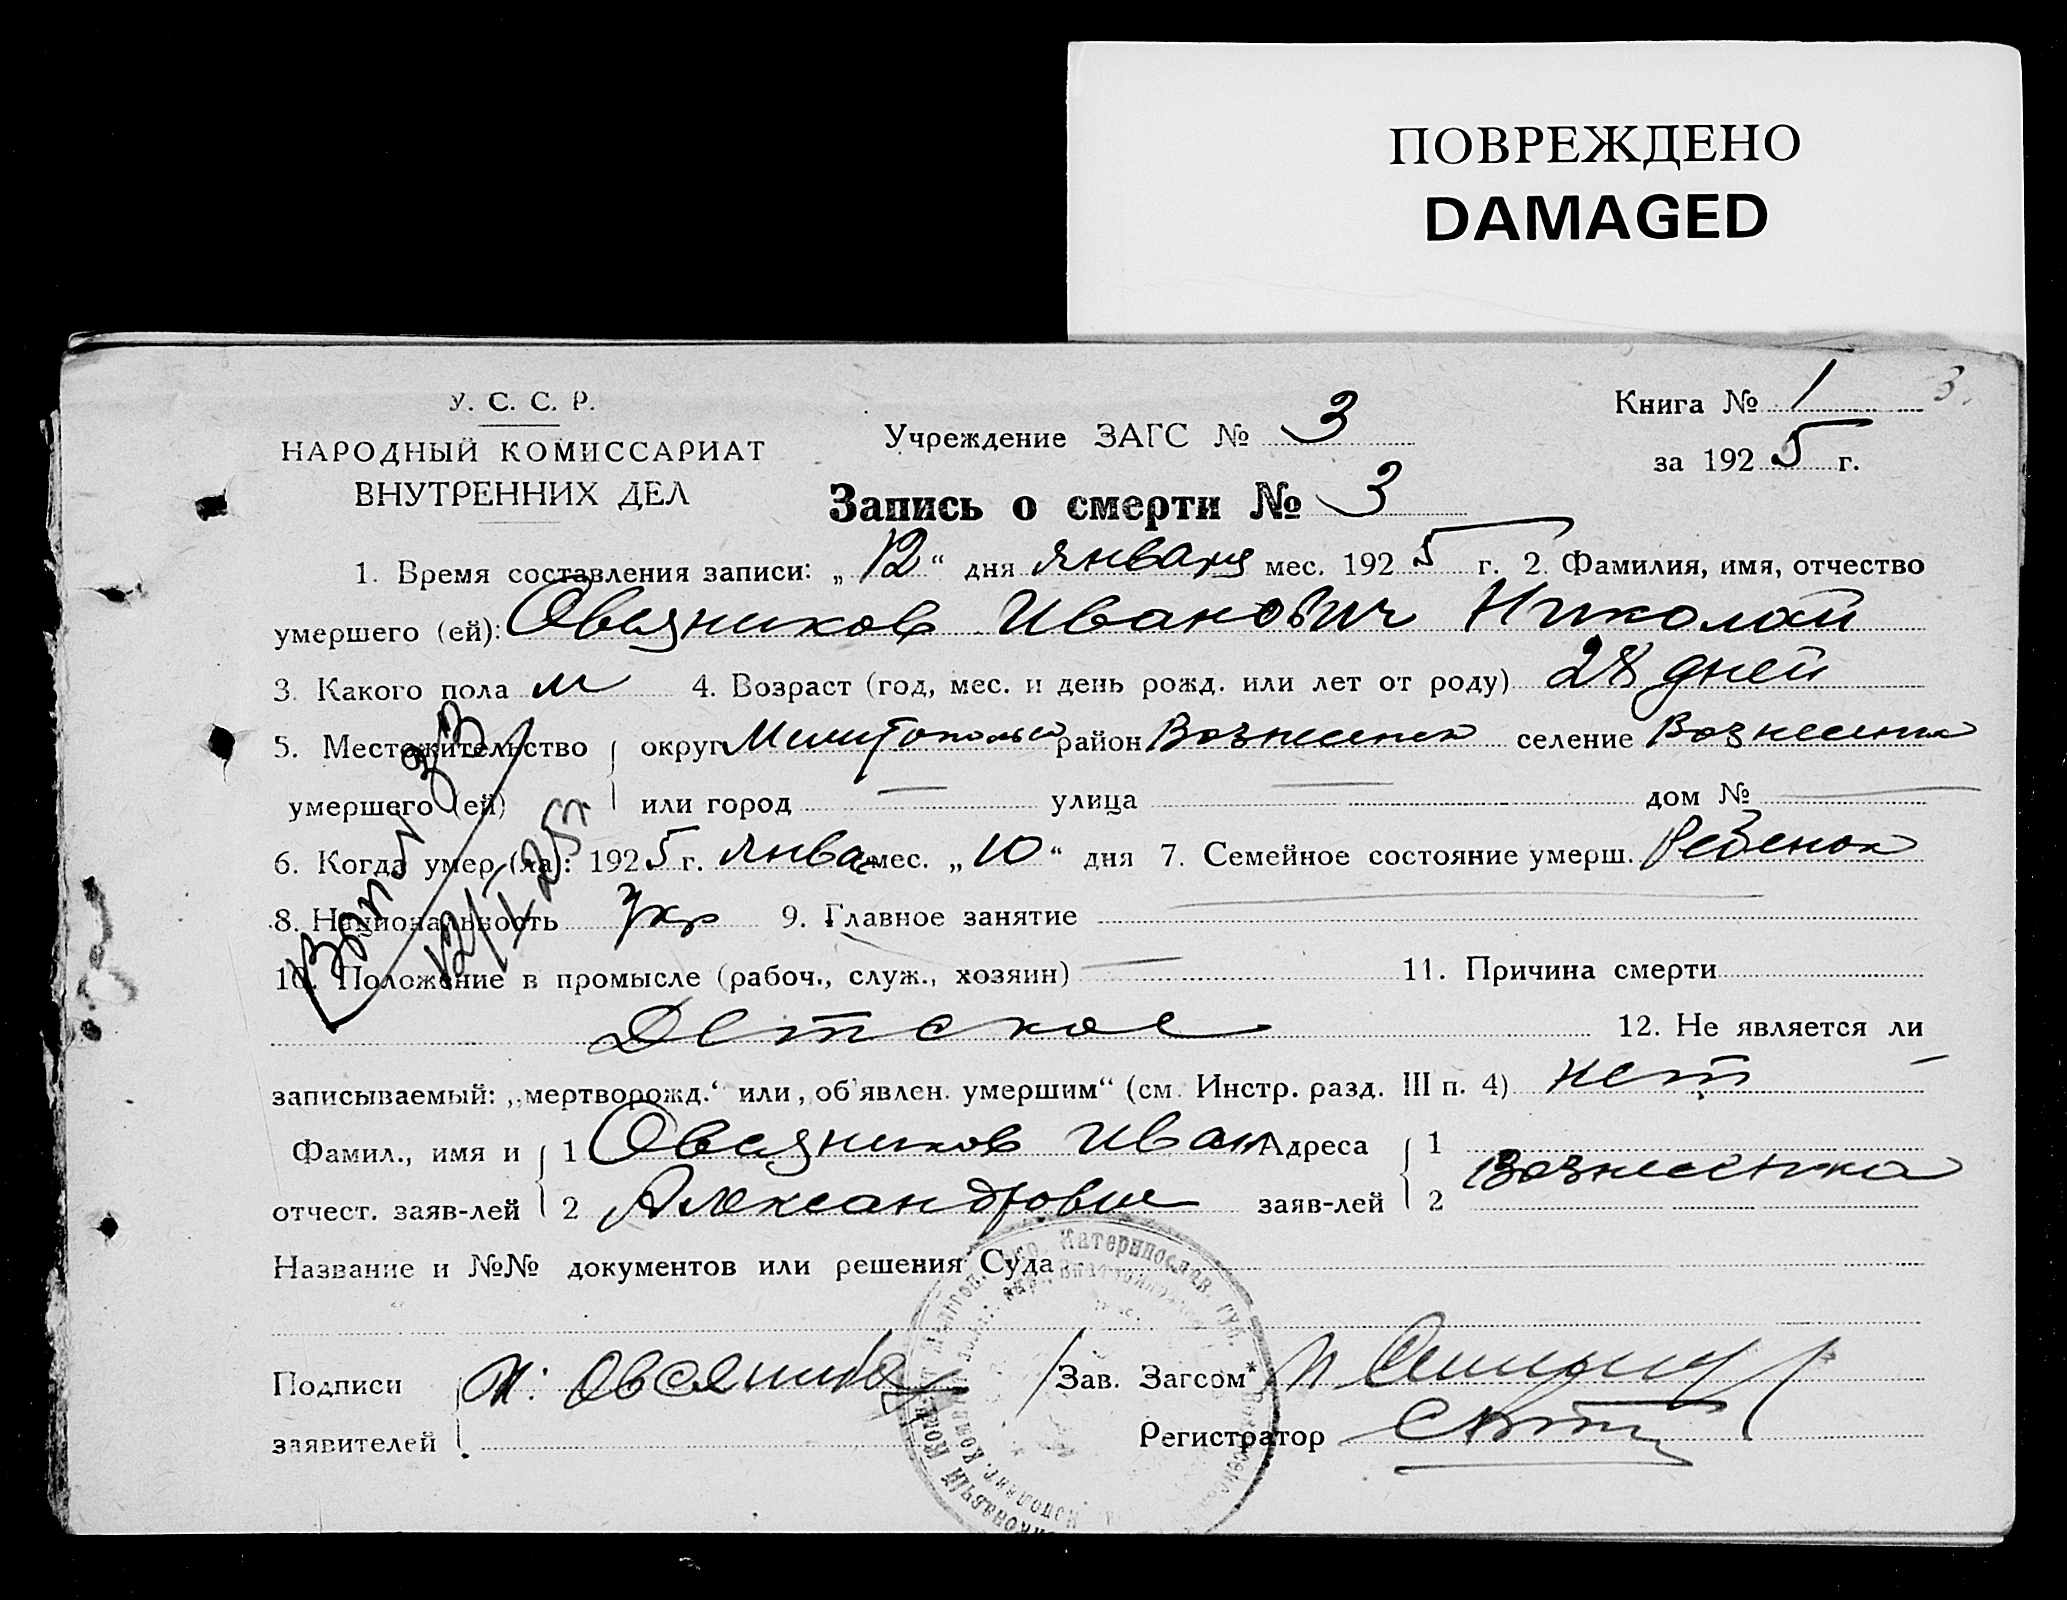 ПОВРЕЖДЕНО
DAMAGED
3.
У. С. С. Р.
НАРОДНЫЙ КОМИССАРИАТ
ВНУТРЕННИХ ДЕЛ
Учреждение ЗАГС № 3
Книга № 1
за 1925 г.
Запись о смерти № 3
1. Время составления записи: „12“ дня января мес. 1925 г. 2. Фамилия, имя, отчество
умершего (ей): Овсяников Иванович Николай
3. Какого пола м 4. Возраст (год, мес. и день рожд. или лет от роду) 28 дней
5. Местожительство округ район Вознесенск селение Вознесенка
умершего (ей) или город — улица — дом № —
6. Когда умер (ла): 1925 г. янва мес. „10“ дня 7. Семейное состояние умерш. Ребенок
8. Национальность Укр 9. Главное занятие —
10. Положение в промысле (рабоч., служ., хозяин) — 11. Причина смерти
Детское 12. Не является ли
записываемый: „мертворожд.“ или „об'явлен. умершим“ (см. Инстр. разд. III п. 4) нет
Фамил., имя и 1 Овсяников Иван Адреса 1
Вознесенка
отчест. заяв-лей 2 Александрович заяв-лей 2
Название и №№ документов или решения Суда
Подписи И. Овсяников Зав. Загсом
заявителей Регистратор
12/I-25г
Катеринослав. губ.